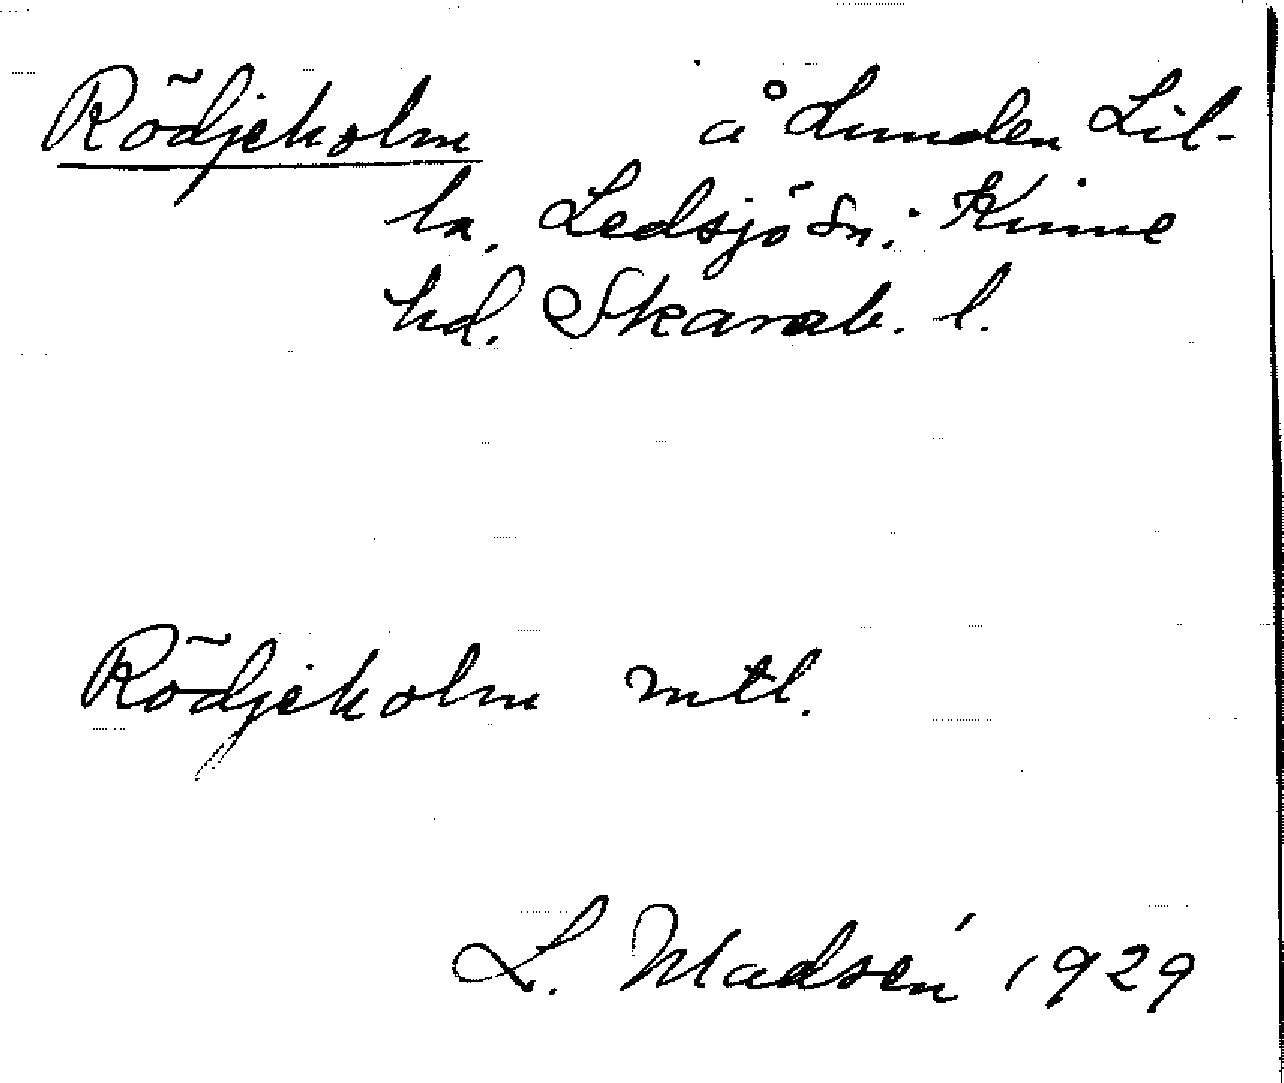 Rödjeholm å Lunden Lil-
la, Ledsjö sn; Kinne
hd. Skarab. l.
Rödjeholm mtl.
L. Madsén 1929